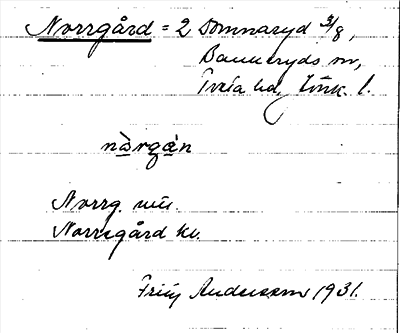 Norrgård = 2 Domnaryd 3/8,
Bankeryds sn,
Tveta hd, Jönk. l.
nòrgán
Norrg. uu.
Norregård kv.
Andersson 1931.